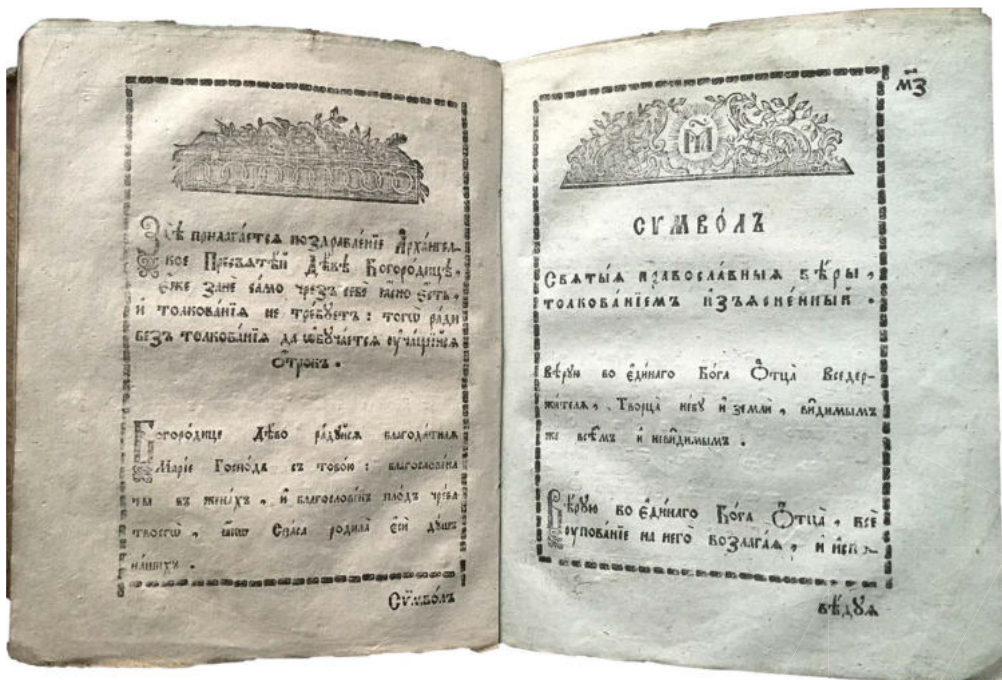 Здѣ прилага́ется поздравле́нїе А҆рха́нгел-
ское Пресвятѣ́й Дѣ́вѣ Богоро́дицѣ,
є҆́же занѐ са́мо чрез̾ себѐ ꙗ҆́сно є҆́сть,
и҆ толкова́нїя не тре́бꙋетъ: тогѡ̀ ра́ди
без̾ толкова́нїя да ѡ҆бꙋча́ется ᲂу҆ча́щїйся
Ѻ҆́трокъ.
Богоро́дице Дѣ́во ра́дꙋйся благода́тная
Марі́е Госпо́дь съ тобо́ю: благослове́на
ты̀ въ жена́хъ, и҆ благослове́нъ пло́дъ чре́ва
твоегѡ̀, ꙗ҆́кѡ Спа́са родила̀ є҆сѝ дꙋ́шъ
на́шихъ.
Сѷмво́лъ
м҃з
М҃І
СѶМВО́ЛЪ
Свяⷮты́я правосла́вныя вѣ́ры,
толкова́нїемъ и҆з̾ясне́нный.
Вѣ́рꙋю во є҆ди́наго Бо́га Ѻ҆тца̀ Вседер-
жи́теля, Творца̀ не́бꙋ и҆ землѝ, ви́димымъ
же всѣ́мъ и҆ неви́димымъ.
Вѣ́рꙋю во є҆ди́наго Бо́га Ѻ҆тца̀, всѐ
ᲂу҆пова́нїе на него̀ возлага́я, и҆ и҆спо-
вѣ́дꙋя